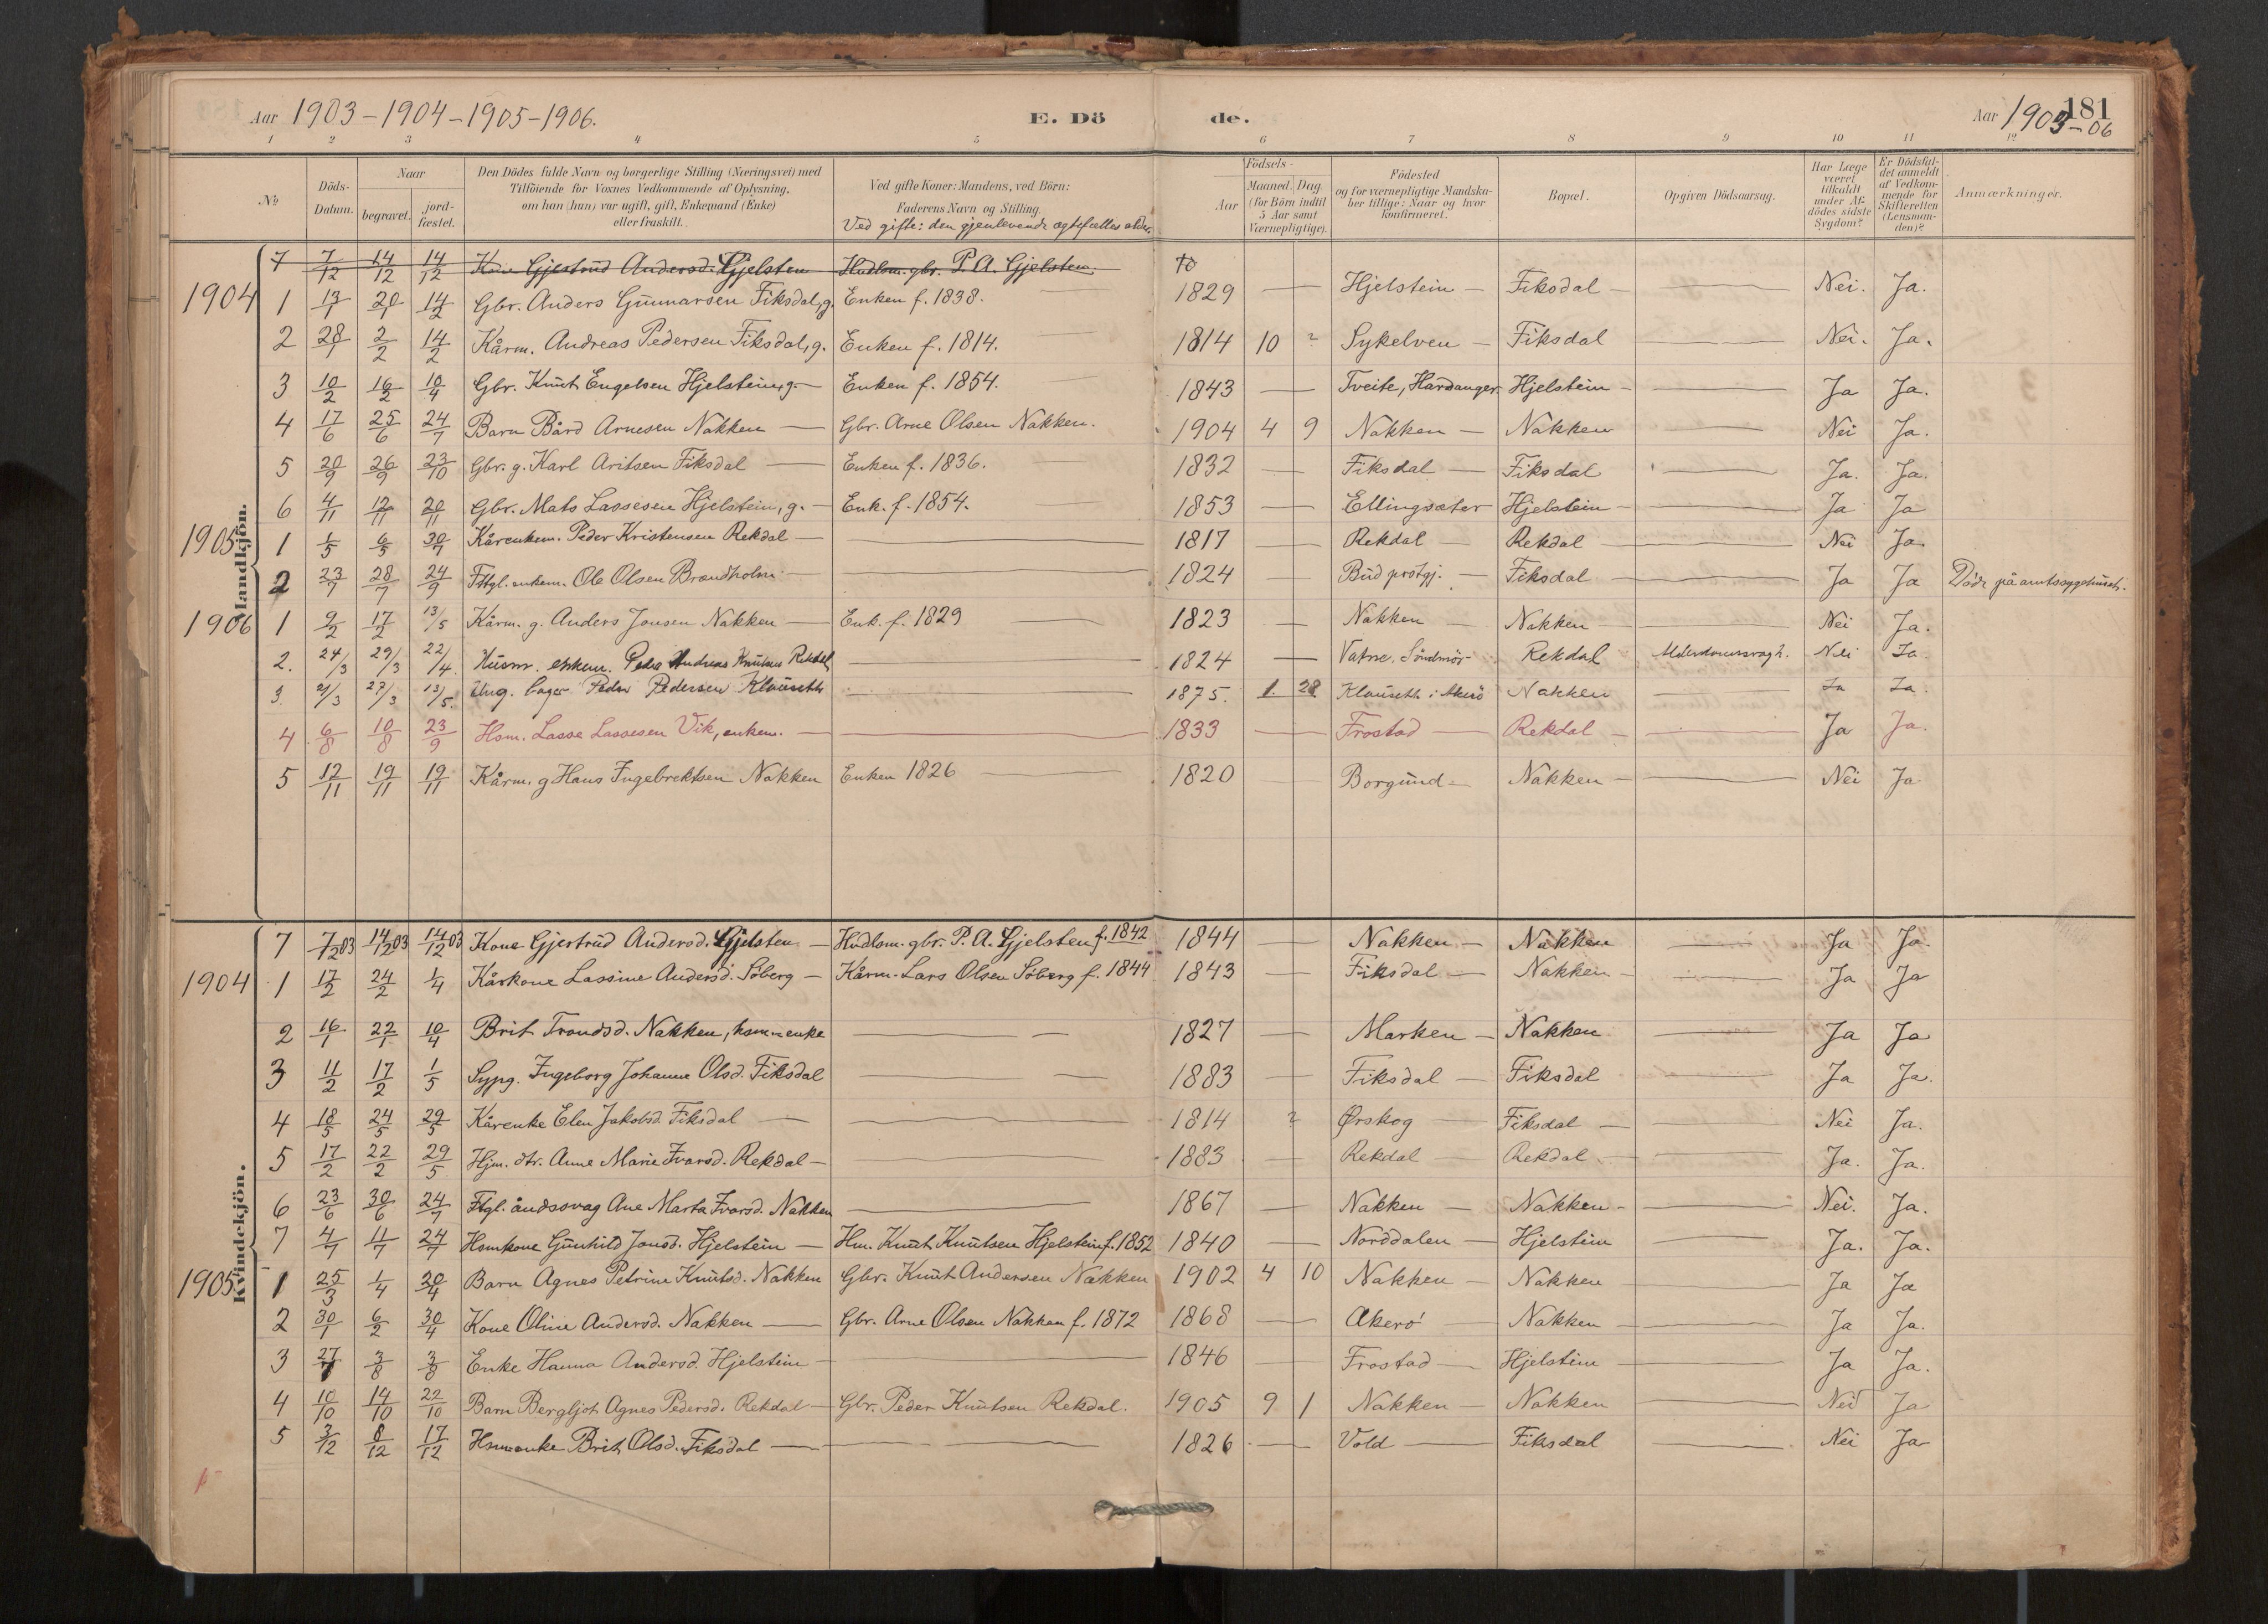 Aar 1903-1904-1905-1906. E. Dö de. Aar 1903-06 181
1 2 3 4 5 6 7 8 9 10 11 12
№ Döds-Datum. Naar begravet. jordfæstet. Den Dödes fulde Navn og borgerlige Stilling (Næringsvei) med Tilföiende for Voxnes Vedkommende af Oplysning, om han (hun) var ugift, gift, Enkemand (Enke) eller fraskilt. Ved gifte Koner: Mandens, ved Börn: Faderens Navn og Stilling. Ved gifte: den gjenlevende ægtefælles alder. Aar Födsels- Maaned. Dag (for Börn indtil 5 Aar samt Værnepligtige). Födested og for værnepligtige Mandskaber tillige: Naar og hvor konfirmeret. Bopæl. Opgiven Dödsaarsag. Har Læge været tilkaldt under Afdödes sidste Sygdom? Er Dödsfaldet anmeldt af Vedkommende for Skifteretten (Lensmanden)? Anmærkninger.
Mandkjön.
7 7/12 14/12 14/12 Kone Gjertrud Andersd. Gjelsten Hudlsm. gbr. P. A. Gjelsten.
1904 1 13/1 20/1 14/2 Gbr. Anders Gunnarsen Fiksdal, g. Enken f. 1838. 1829 Hjelstein Fiksdal Nei. Ja.
2 28/1 2/2 14/2 Kårm. Andreas Pedersen Fiksdal, g. Enken f. 1814. 1814 10 ? Sykelven Fiksdal Nei. Ja.
3 10/2 16/2 10/4 Gbr. Knut Engelsen Hjelstein, g. Enken f. 1854. 1843 Tveite, Hardanger Hjelstein Ja Ja.
4 17/6 25/6 24/7 Barn Bård Arnesen Nakken Gbr. Arne Olsen Nakken. 1904 4 9 Nakken Nakken Nei Ja.
5 20/9 26/9 23/10 Gbr. g. Karl Aritsen Fiksdal Enken f. 1836. 1832 Fiksdal Fiksdal Ja. Ja.
6 4/11 12/11 20/11 Gbr. Mats Lassesen Hjelstein, g. Enk. f. 1854. 1853 Ellingsæter Hjelstein Ja Ja
1905 1 1/5 6/5 30/7 Kårenkem. Peder Kristensen Rekdal 1817 Rekdal Rekdal Nei Ja.
2 23/7 28/7 24/9 Fttgl. enkem. Ole Olsen Brandholm 1824 Bud prstgj. Fiksdal Ja Ja Döde på amtssygehuset.
1906 1 9/2 17/2 13/5 Kårm. g. Anders Jonsen Nakken Enk. f. 1829 1823 Nakken Nakken Nei Ja.
2. 24/3 29/3 22/4. Husm. enkem. Peder Andreas Knutsen Rekdal 1824 Vatne, Söndmör Rekdal Alderdomssvagh. Nei Ja.
3. 21/3 27/3 13/5. Ung. bager Peder Pedersen Klauseth 1875. 1. 28. Klauseth i Akerö Nakken Ja Ja.
4 6/8 10/8 23/9 Hsm. Lasse Lassesen Vik, enkem. 1833 Frostad Rekdal Ja Ja.
5 12/11 19/11 19/11 Kårm. g Hans Ingebrektsen Nakken Enken 1826 1820 Borgund Nakken Nei Ja
Kvindekjön.
7 7/12 03 14/12 03 14/12 03 Kone Gjertrud Andersd. Gjelsten Hudlsm. gbr. P. A. Gjelsten f. 1842 1844 Nakken Nakken Ja Ja.
1904 1 17/2 24/2 1/4 Kårkone Lassine Andersd. Söberg Kårm. Lars Olsen Söberg f. 1844 1843 Fiksdal Nakken Ja Ja
2 16/1 22/1 10/4 Brit Trondsd. Nakken, hsm-enke 1827 Marken Nakken Ja Ja
3 11/2 17/2 1/5 Sypg. Ingeborg Johanne Olsd. Fiksdal 1883 Fiksdal Fiksdal Ja Ja.
4 18/5 24/5 29/5 Kårenke Elen Jakobsd. Fiksdal 1814 ? Ørskog Fiksdal Nei Ja.
5 17/2 22/2 29/5 Hjm. dtr. Anne Marie Ivarsd. Rekdal 1883 Rekdal Rekdal Ja. Ja.
6 23/6 30/6 24/7 Ftgl. åndssvag Ane Marta Ivarsd. Nakken 1867 Nakken Nakken Nei. Ja.
7 4/7 11/7 24/7 Hsmkone Gunhild Jonsd. Hjelstein Hm. Knut Knutsen Hjelstein f. 1852 1840 Norddalen Hjelstein Ja. Ja.
1905 1 25/3 1/4 30/4 Barn Agnes Petrine Knutsd. Nakken Gbr. Knut Andersen Nakken 1902 4 10 Nakken Nakken Ja Ja
2 30/1 6/2 30/4 Kone Oline Andersd. Nakken Gbr. Arne Olsen Nakken f. 1872 1868 Akerö Nakken Ja Ja.
3 27/7 3/8 3/8 Enke Hanna Andersd. Hjelstein 1846 Frostad Hjelstein Ja Ja.
4 10/10 14/10 22/10 Barn Bergljot Agnes Pedersd. Rekdal Gbr. Peder Knutsen Rekdal. 1905 9 1 Nakken Nakken Nei Ja
5 3/12 8/12 17/12 Hsmenke Brit Olsd. Fiksdal 1826 Vold Fiksdal Nei Ja